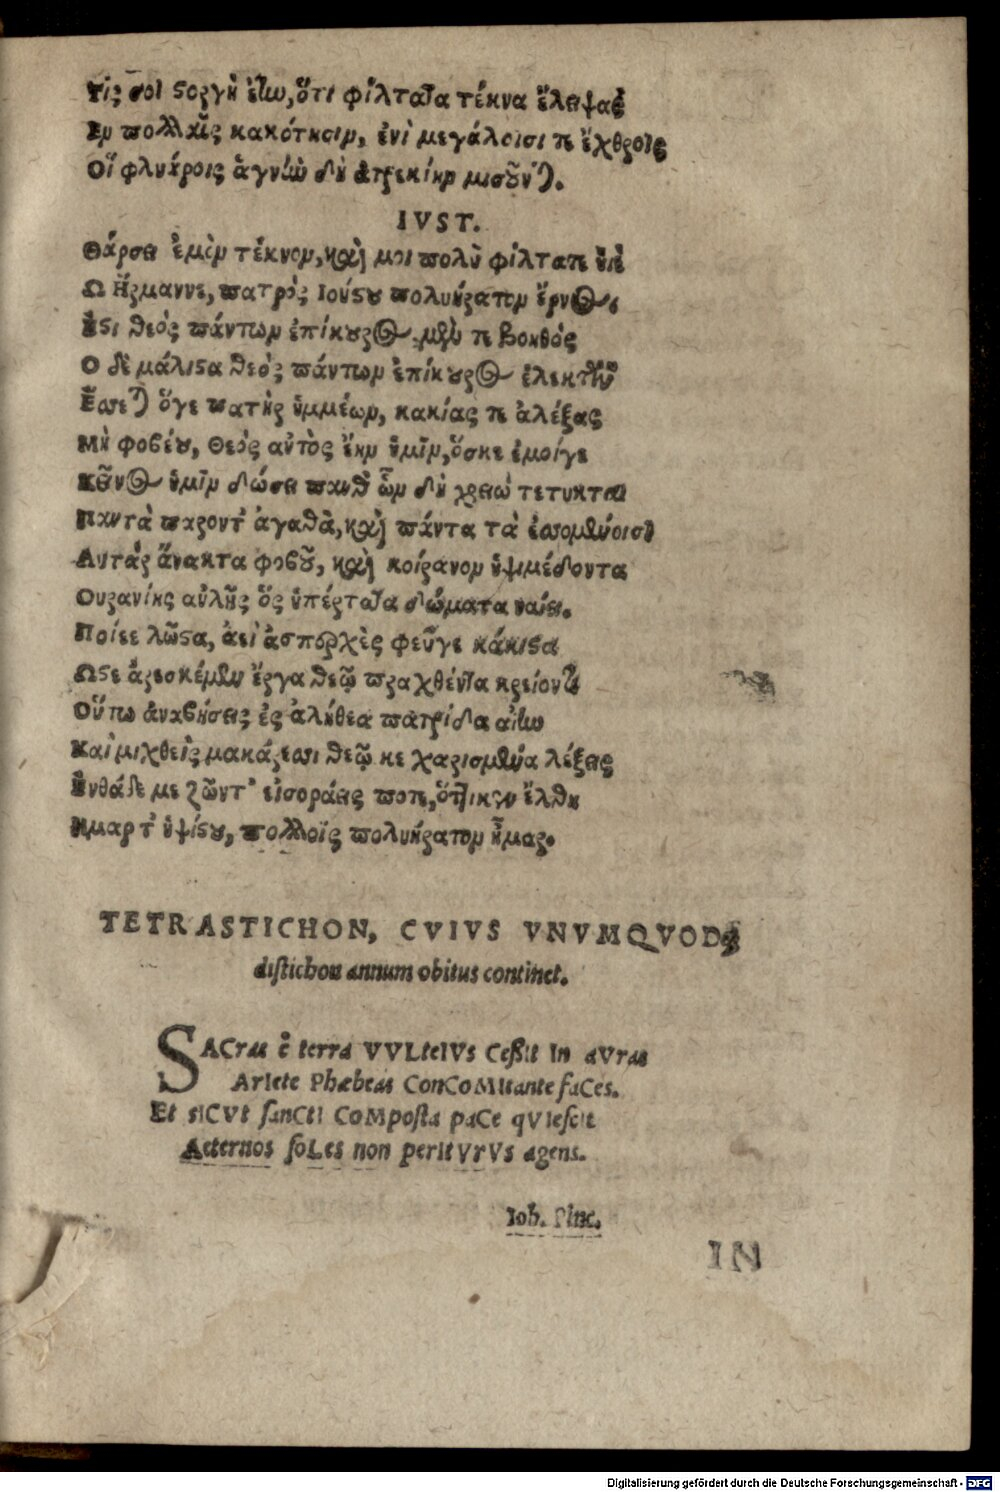 Τίς σοι στοργὴ ἔτω, ὅτι φίλτατα τέκνα ἔλειψας
Ἐν πολλαῖς κακότησιν, ἐνὶ μεγάλοισί τε ἔχθροις
Οἵ φλυάροις ἁγνὼ δὴ ἀτρεκίην μισοῦντ).
IVST.
Θάρσει ἐμὸν τέκνον, καὶ μοι πολὺ φίλτατε υἱὲ
Ω Ἥρμαννε, πατρὸς Ἰούστου πολυήρατον ἔρνος,
Ἔστι θεὸς πάντων ἐπίκουρος μὲν τε βοηθὸς
Ο δὲ μάλιστα θεὸς πάντων ἐπίκουρος ἐλεκτῶν
Ἔσσεται ὅγε πατὴρ ὑμμέων, κακίας τε ἀλέξας
Μὴ φοβέου, Θεὸς αὐτὸς ἔην ὑμῖν, ὅσκε ἐμοίγε
Κεῖνος ὑμῖν δώσει πανθ᾽ ὧν δὴ χρειὼ τέτυκται
Παντὰ παρόντ᾽ ἀγαθὰ, καὶ πάντα τὰ ἐσσομένοισι
Αυτὰρ ἄνακτα φοβοῦ, καὶ κοίρανον ὑψιμέδοντα
Ουρανίης αὐλῆς ὃς ὑπέρτατα δώματα ναίει.
Ποίεε λῶστα, ἀεὶ ἀσπερχὲς φεῦγε κάκιστα
Ωστε ἀρεσκέμεν ἔργα θεῷ πραχθέντα κρείοντι
Οὕτω ἀναβήσεις ἐς ἀληθέα πατρίδα αἰτω
Καὶ μιχθεὶς μακάρεσσι θεῷ κε χαρισμένα λέξεις
Ἐνθάδε με ζῶντ᾽ εἰσοράεις ποτε, ὅτ ἱκεν ἔλθῃ
Ημαρ τ᾽ ὑψίστου, πολλοῖς πολυήρατον ἦμαρ.
TETRASTICHON, CVIVS VNVMQVODQ;
distichon annum obitus continet.
SACras è terra VVLteIVs Ceßit In aVras
ArIete Phæbeas ConCoMitante faCes.
Et sICVt sanCtI CoMposta paCe qVIescit
Aeternos soLes non perItVrVs agens.
Ioh. Pinc.
IN
Digitalisierung gefördert durch die Deutsche Forschungsgemeinschaft - DFG